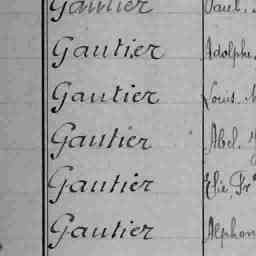 Gautier Paul,
Gautier Adolphe,
Gautier Louis,
Gautier Abel,
Gautier Elie, Fr
Gautier Alphon